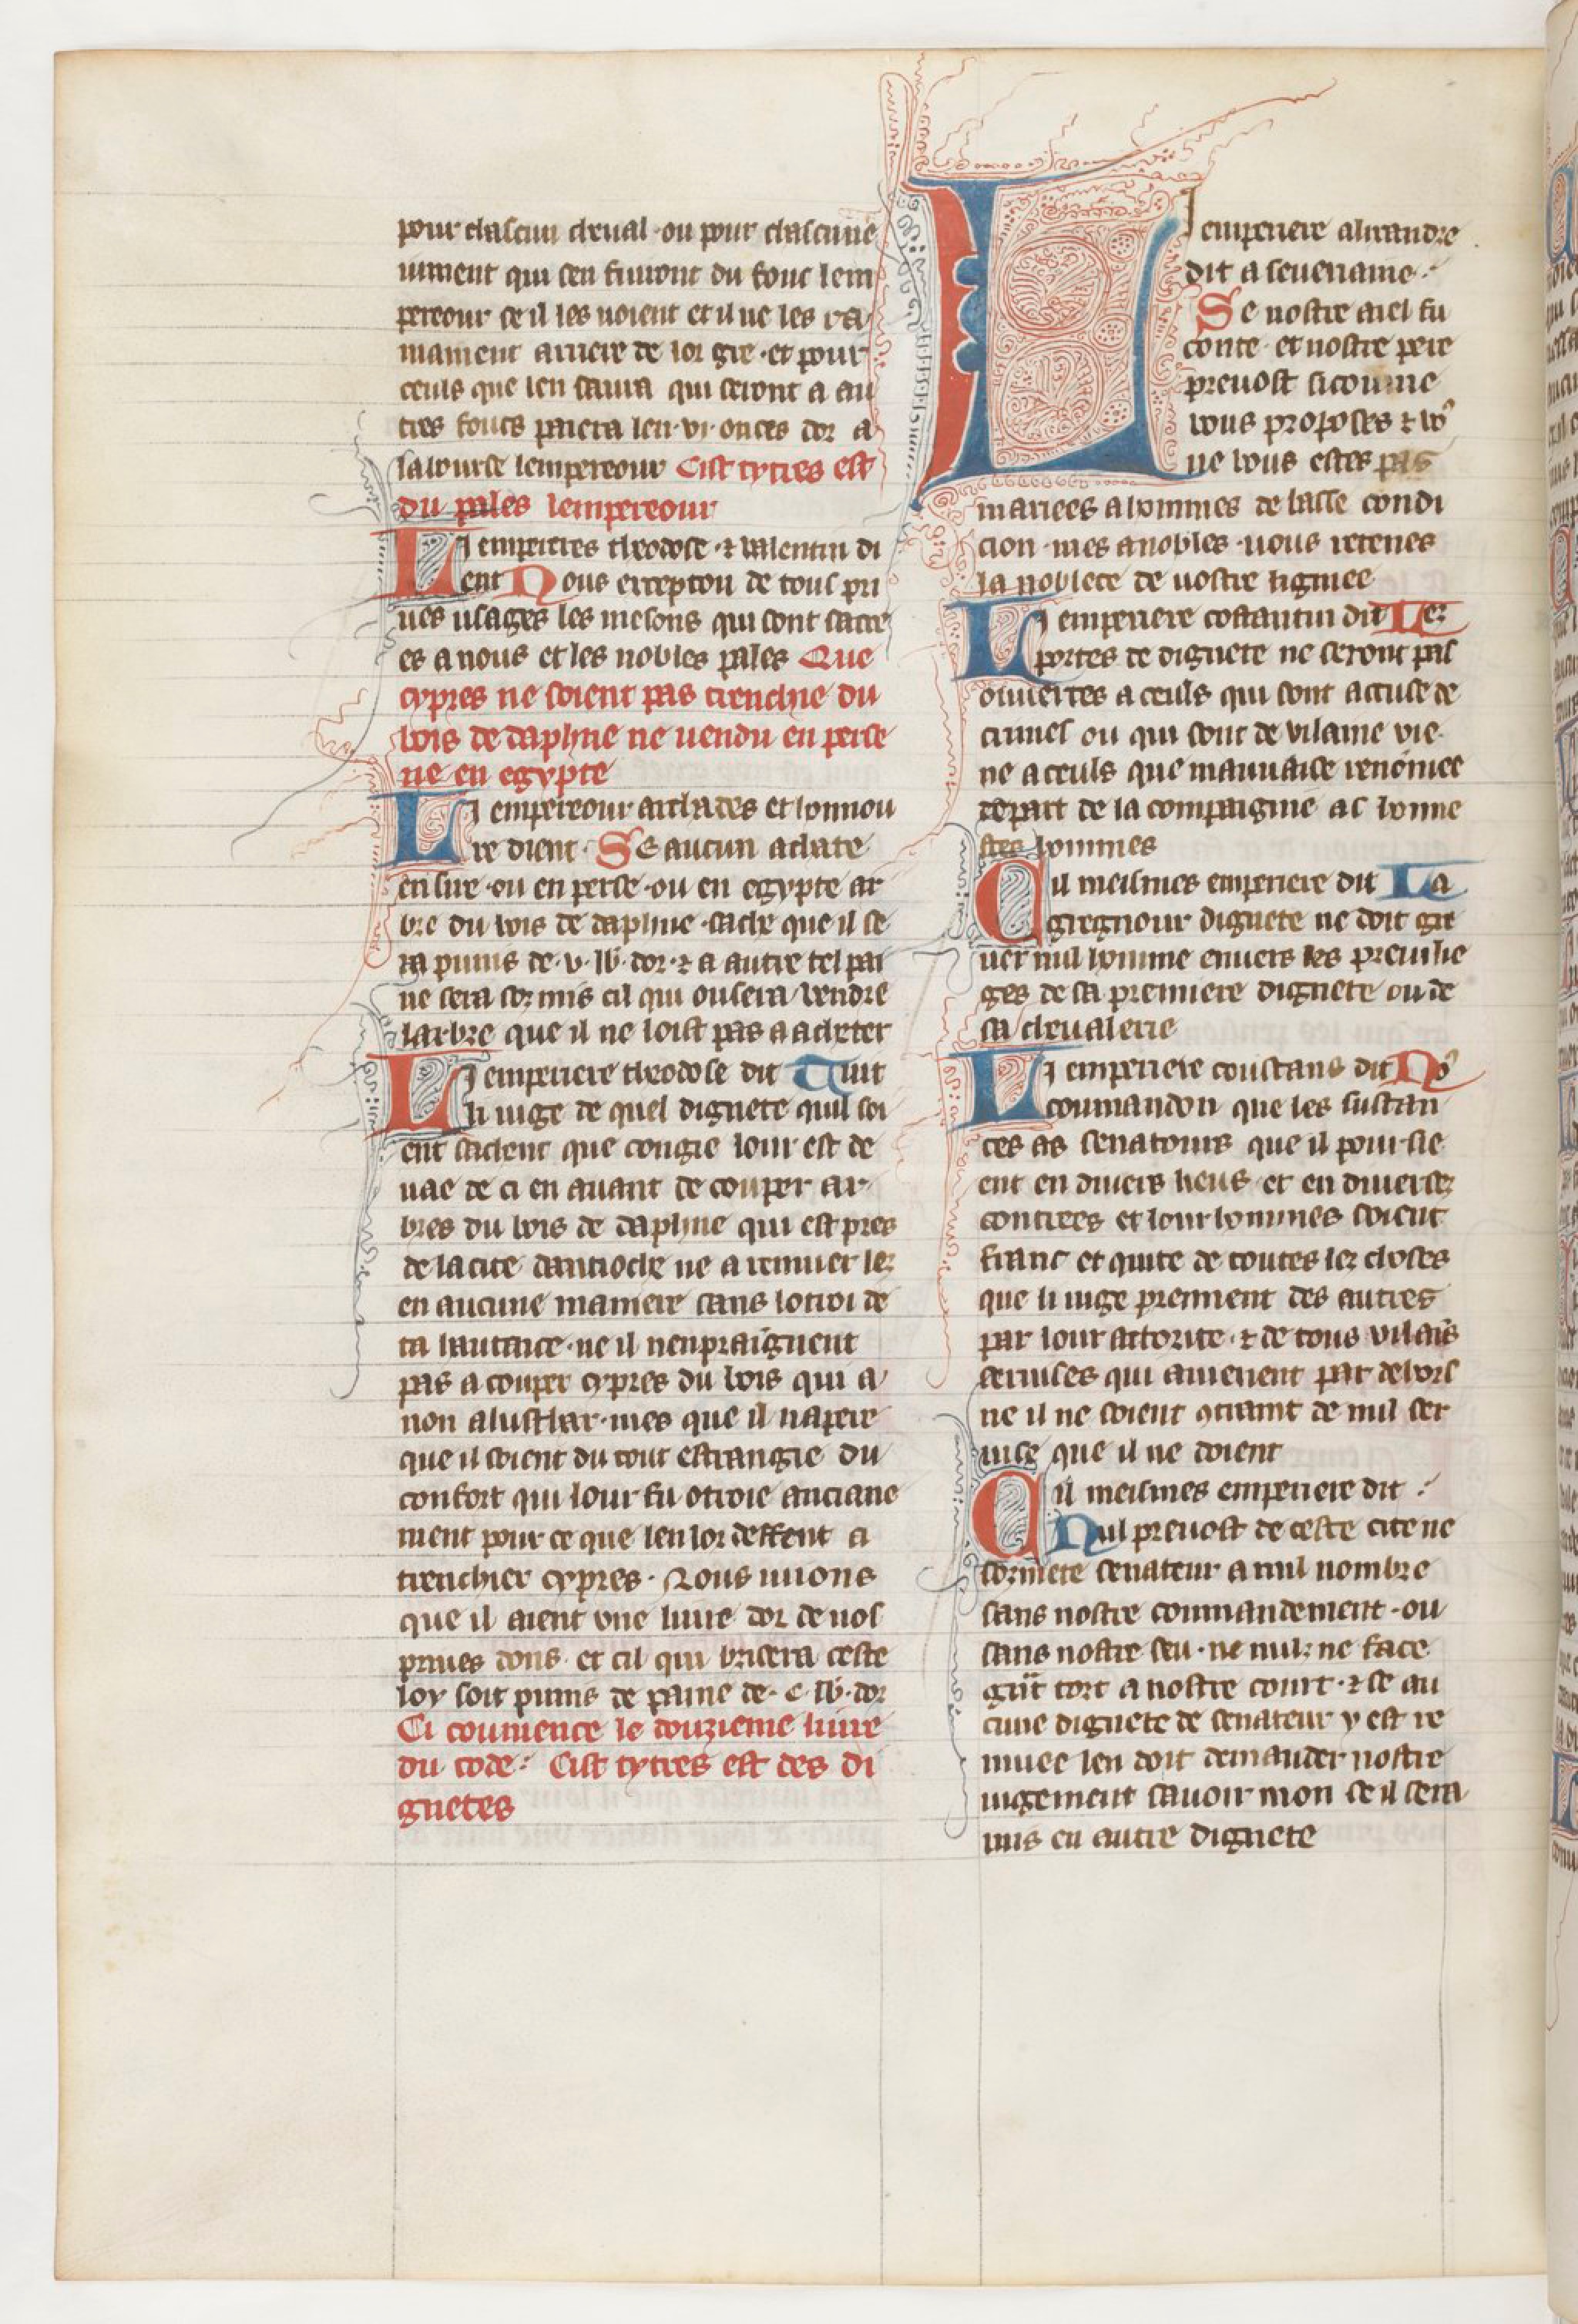 pour chascun cheual · ou pour chascune
iument qui sen fuiront du fouc lem
pereour se il les uoient et il ne les ra
mainent arriere de lor gre · et pour
ceuls que len saura qui seront a au
tres foucs paiera len · vi · onces dor a
la bourse lempereour Cist tytres est
du pales lempereour
Li emperieres theodose · ⁊ valentin di
ent Nous excepton de tous pri
ues usages les mesons qui sont sacre
es a nous et les nobles pales Que
cypres ne soient pas trenchie du
bois de daphne ne uendu en perse
ne en egypte
Li empereour archades et honnou
re dient · Se aucun achate
en sire · ou en perse · ou en egypte ar
bre du bois de daphne · sache que il se
ra punis de · v · lb · dor · ⁊ a autre tel pai
ne sera sozmis cil qui ousera vendre
larbre que il ne loist pas a acheter
Li emperiere theodose dit Tuit
li iuge de quel dignete quil soi
ent sachent que congie lour est de
uae de ci en auant de couper ar
bres du bois de daphne qui est pres
de la cite dantioche ne a remuer lez
en aucune maniere sans lotroi de
ta hautaice · ne il nenpraignent
pas a couper cypres du bois qui a
non alusthar · mes que il napere
que il soient du tout estrangie du
confort qui lour fu otroie anciane
ment pour ce que len lor deffent a
trenchier cypres · Nous uuons
que il aient vne liure dor de nos
priues dons · et cil qui brisera ceste
loy soit punis de paine de · c · lb · dor
Ci coumence le douzieme liure
du code : Cist tytres est des di
gnetes
Li emperiere alixandre
dit a seueriaine :
Se nostre aiel fu
conte · et nostre pere
preuost sicoume
vous proposes ⁊ vo⁹
ne vous estes pas
mariees a hommes de basse condi
cion · mes a nobles · uous retenes
la noblece de uostre lignie
Li emperiere costantin dit Lez
portes de dignete ne seront pas
ouuertes a ceuls qui sont accuse de
crimes ou qui sont de vilaine vie
ne a ceuls que mauuaise renōmee
depart de la compaignie as honne
stes hommes
Cil meismes emperiere dit La
gregnour dignete ne doit gre
uer nul homme enuers les preuilie
ges de sa premiere dignete ou de
sa cheualerie
Li emperiere coustans dit No⁹
coumandon que les sustan
ces as senatours que il poursie
ent en diuers lieus · et en diuersez
contrees et lour hommes soient
franc et quite de toutes lez choses
que li iuge prennent des autres
par lour actorite · ⁊ de tous vilais
seruises qui auienent par dehors
ne il ne soient ꝯtraint de nul ser
uise que il ne doient
Cil meismes emperiere dit :
Nul preuost de ceste cite ne
sozmete senateur a nul nombre
sans nostre coumandement · ou
sans nostre seu · ne nulz ne face
tort a nostre court · ⁊ se au
cune dignete de senateur y est re
muee len doit demander nostre
iugement sauoir mon se il sera
mis en autre dignete